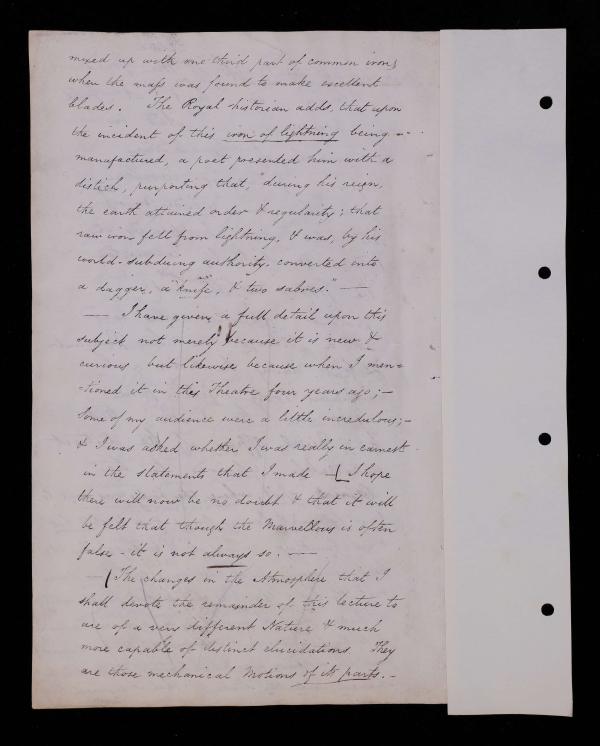 mixed up with one third part of common iron,
when the mass was found to make excellent
blades. The Royal historian adds, that upon
the incident of this iron of lightning being -
manufactured, a poet presented him with a
distich, purporting that, "during his reign,
the earth attained order & regularity; that
raw iron fell from lightning, & was, by his
world-subduing authority, converted into
a dagger, a knife, & two sabres." —
— I have given a full detail upon this
subject not merely because it is new &
curious but likewise because when I men=
=tioned it in this Theatre four years ago; —
Some of my audience were a little incredulous; —
& I was asked whether I was really in earnest
in the statements that I made — I hope
there will now be no doubt & that it will
be felt that though the Marvellous is often
false - it is not always so. —
— The changes in the Atmosphere that I
shall devote the remainder of this lecture to
are of a very different Nature & much
more capable of distinct elucidations They
are those mechanical Motions of its parts. -